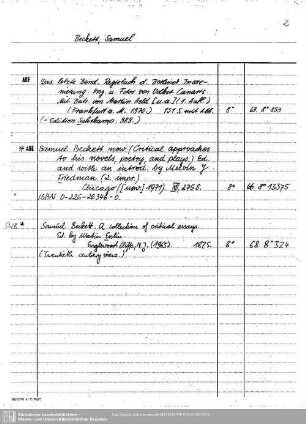 2
Beckett, Samuel
ABF Das letzte Band. Regiebuch d. Berliner Insze-
nierung. Hrsg. u. Fotos von Volker Canaris.
Mit Beitr. von Martin Held [u.a.] (1. Aufl.)
(Frankfurt a. M. 1970.) 151 S. mit Abb. 8° 69. 8° 853
(= edition suhrkamp. 389.)
* ABF Samuel Beckett now. (Critical approaches
to his novels, poetry, and plays.) Ed.
and with an introd. by Melvin J.
Friedman (2. impr.)
Chicago ([usw.] 1971). XI, 275 S. 8° 66. 8° 13575
ISBN 0-226-26346-0.
* Samuel Beckett. A collection of critical essays.
Ed. by Martin Esslin
Englewood Cliffs, N.J. (1965). 182 S. 8° 68. 8° 324
(Twentieth century views.)